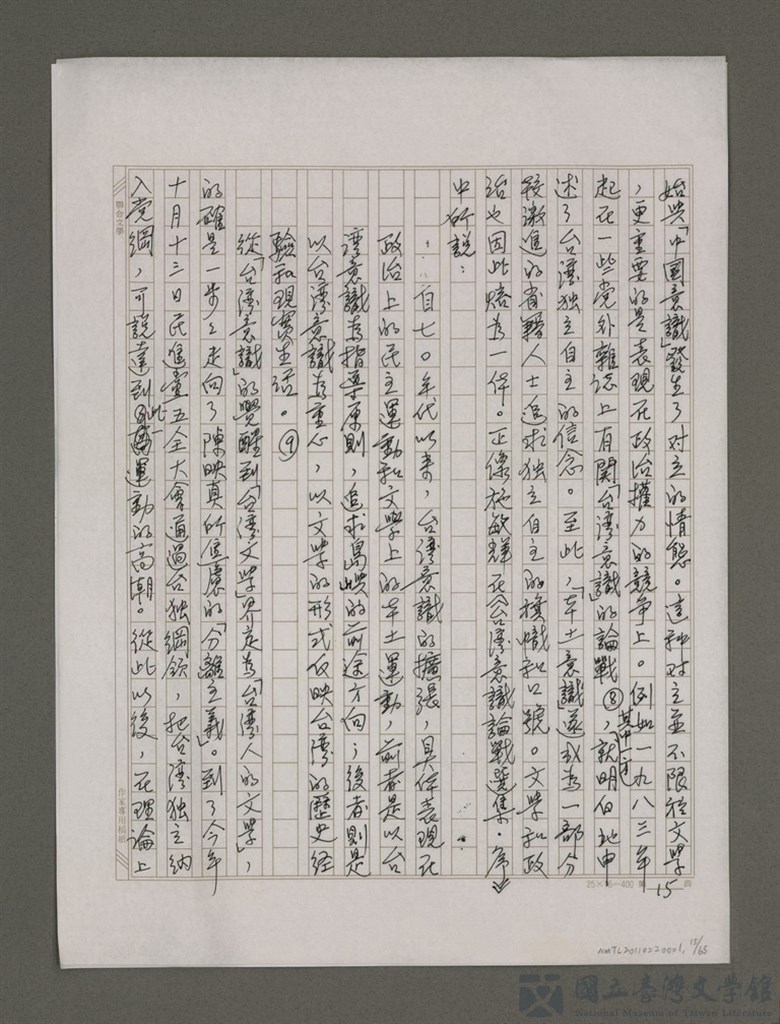 始與「中国意識」發生了对立的情態。這种对立並不限於文學
，更重要的是表現在政治權力的競争上。例如一九八三年
起在一些党外雜誌上有関「台湾意識」的論戰⑧，其中就明白地申
述了台湾独立自主的信念。至此，「本土意識」遂成為一部分
較激進的省籍人士追求独立自主的旗幟和口號。文學和政
治也因此賂為一体。正像施敏輝在《台湾意識論戰選集・序》
中所説：
……自七〇年代以來，台湾意識的擴張，具体表現在
政治上的民主運動和文學上的本土運動，前者是以台
灣意識為指導原則，追求島嶼的前途方向；後者則是
以台湾意識為重心，以文學的形式反映台湾的歷史經
驗和現實生活。⑨
從「台湾意識」的覺醒到「台湾文學」界定為「台湾人的文學」，
的確是一步々走向了陳映真所焦慮的「分離主義」。到了今年
十月十三日民進黨五全大會通過台独綱領，把台湾独立納
入党綱，可説達到此一運動的高潮。從此以後，在理論上
聯合文學
作家專用稿紙
25×16=400 第15頁
NMTL20110220001, 15/65
國立臺灣文學館
National Museum of Taiwan Literature